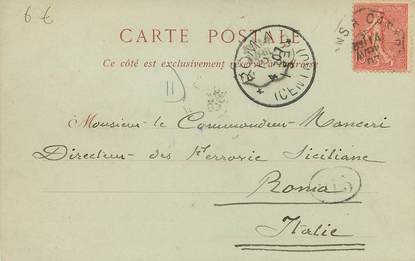 6 €
CARTE POSTALE
Ce côté est exclusivement réservé à l'adresse
11
Monsieur le Commandeur Manceri
Directeur des Ferrovie Siciliane
Roma
Italie